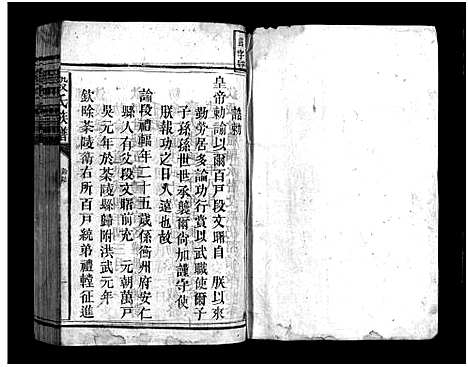 誥勅
皇帝勅諭以爾百戶段文曙自　朕以來
勤勞居多論功行賞以武職使爾子
子孫孫世世承襲爾尙加謹守使
朕報功之日久遠也故
諭段禮輻年二十五歲係衡州府安仁
縣人有父段文曙前充　元朝萬戶
吳元年於茶陵歸附洪武元年
欽除茶陵衛右所百戶統弟禮𨍏征進
段氏族譜